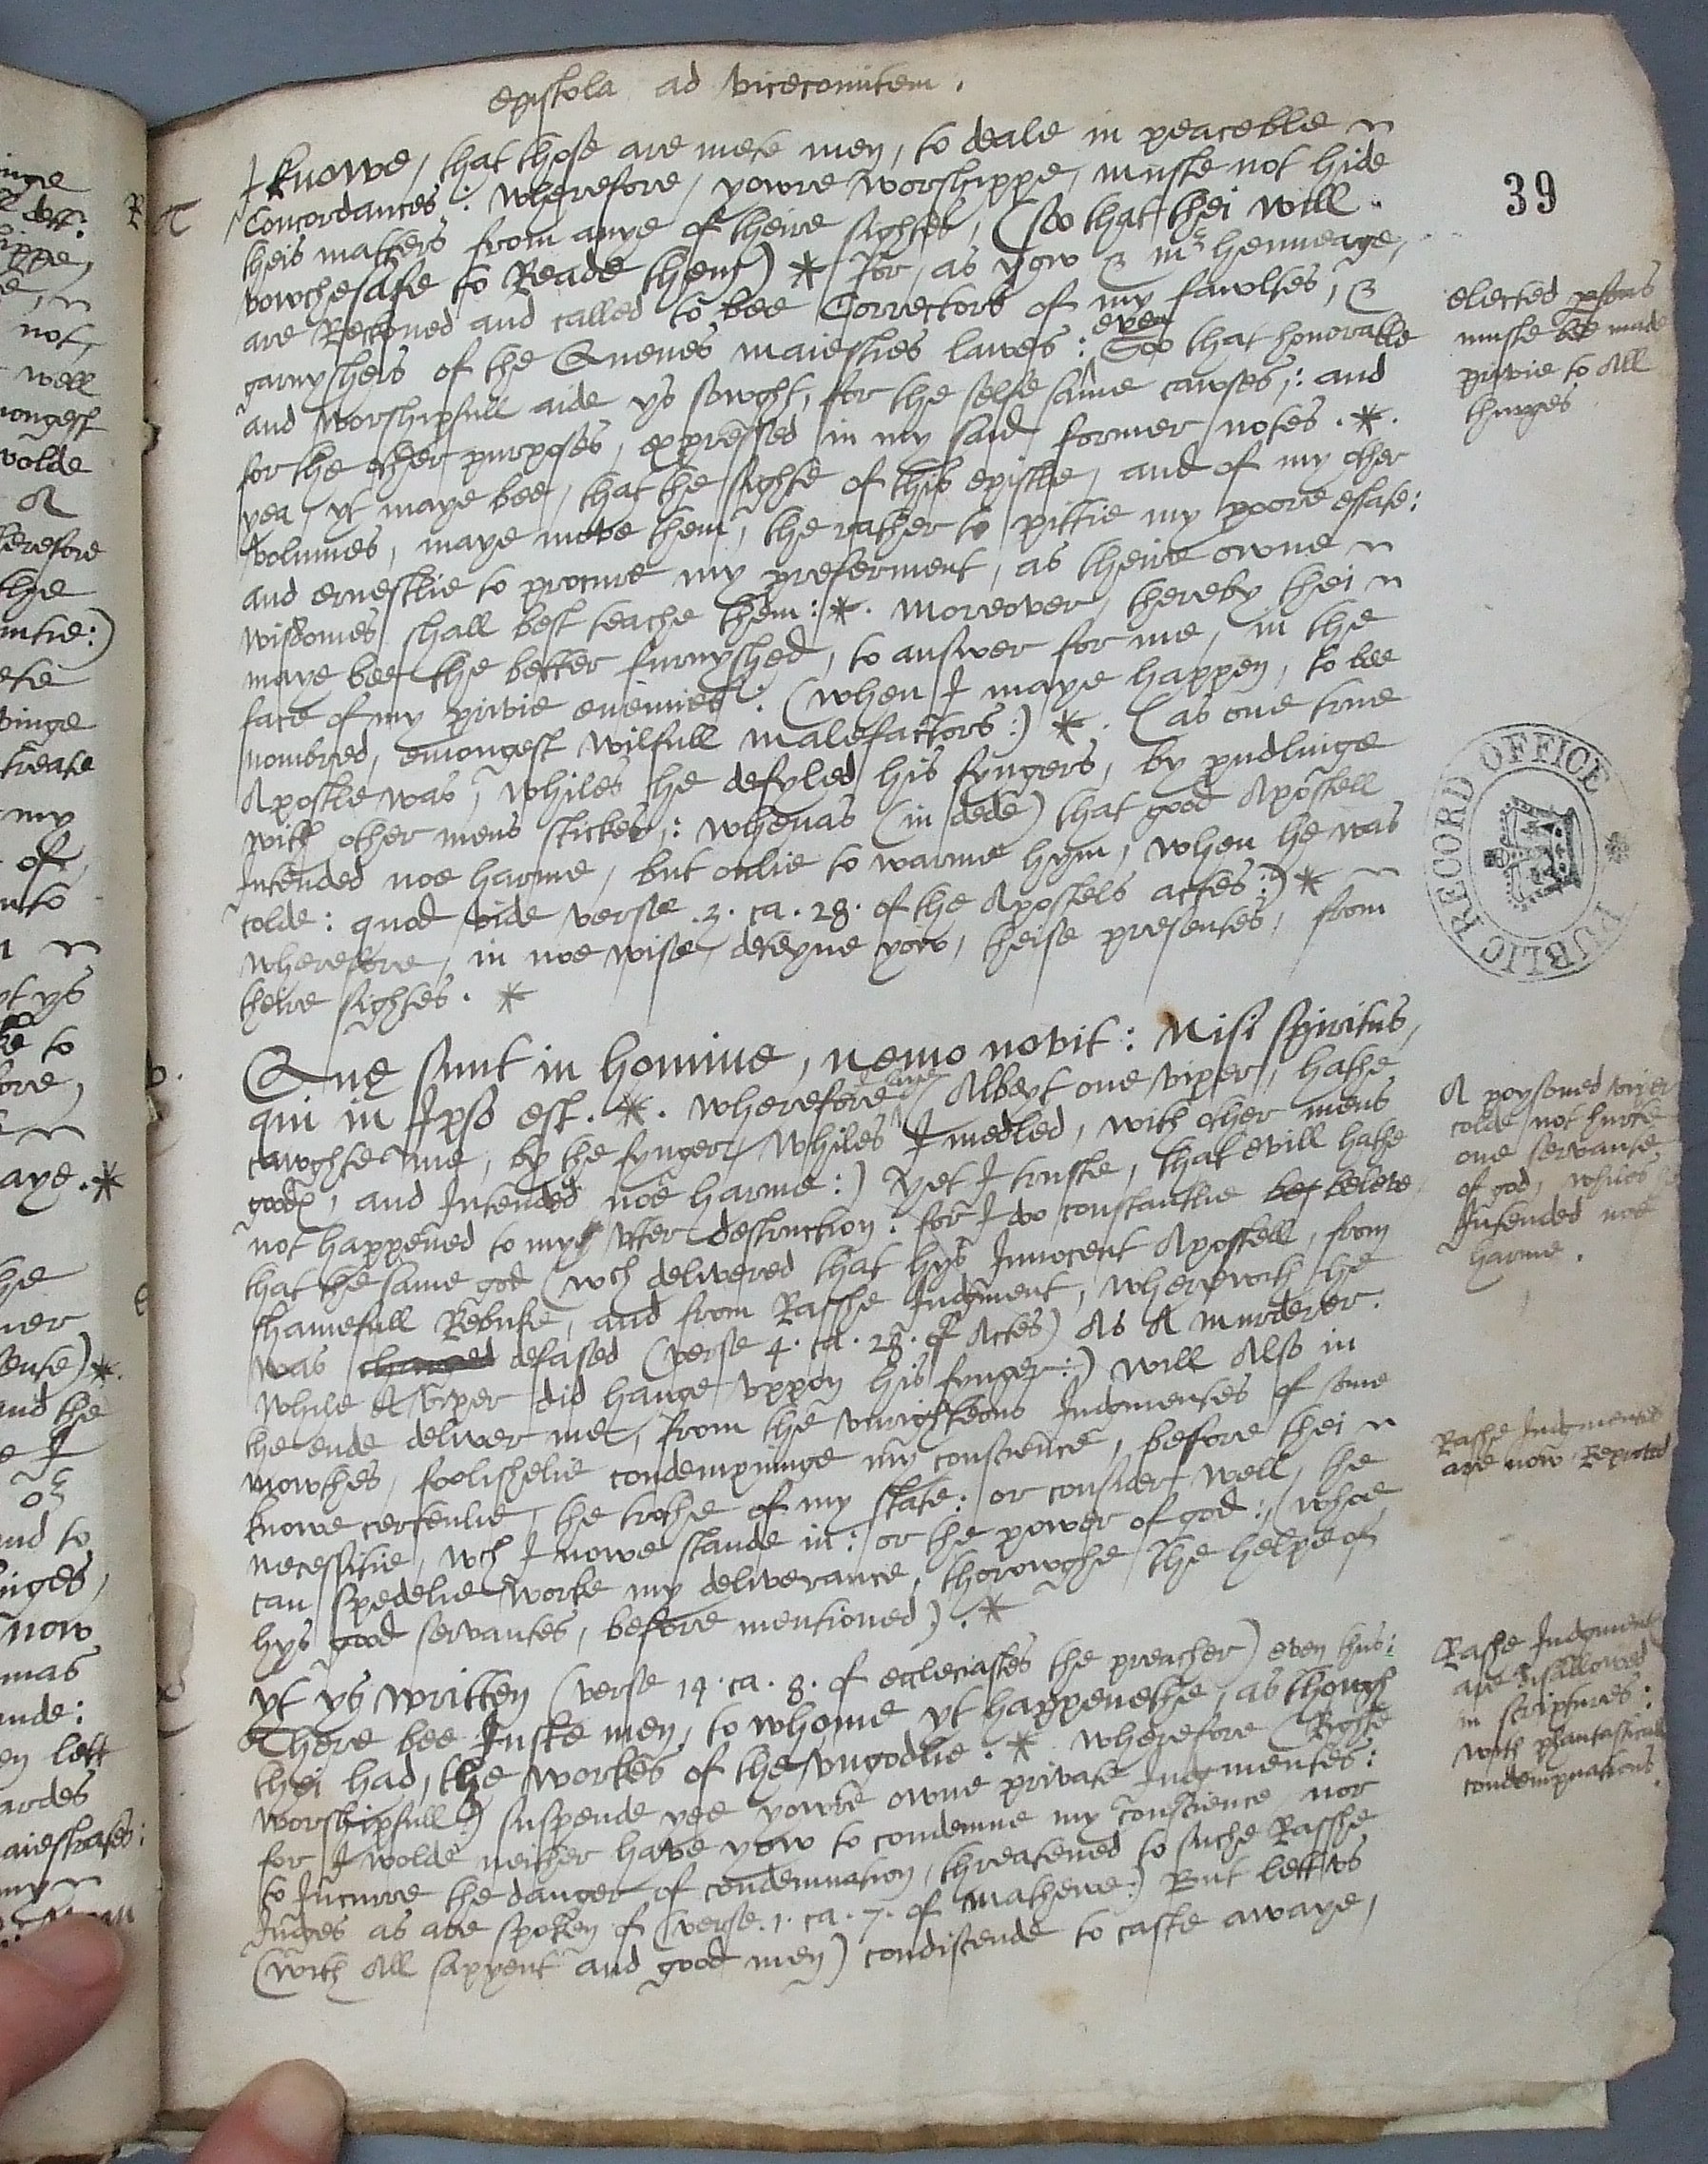 epistola ad vicecomitem.
39
I knowe, that those are mete men, to deale in peaceble
Concordances: wherefore, yowre worshippe, muste not hide
theis matters from anye of theire sightes, (soo that thei will
vowchesafe to Reade them) * for, as yow & mr henneage,
are Reckoned and called to bee Correctors of my fawltes, &
garnyshers of the Quenes maiesties lawes: even Soo that honorable
and worshipfull aide ys sowght, for the selfe same cawses: and
for the other purposes, expressed in my said former notes. *.
yea, yt maye bee, that the sighte of this epistle, and of my other
volumes, maye move them, the rather to pittie my poore estate:
and ernestlie to procure my preferment, as theire owne
wisdomes shall best teache them: *. moreover, thereby thei
maye bee the better furnyshed, to answer for me, in the
face of my privie enemies: (when I maye happen, to bee
nombred, emongest wilfull malefactors:) *. (as one true
Apostle was, whiles he defyled his fyngers, by pudlinge
with other mens stickes: whenas (in dede) that good Apostell
Intended noe harme, but onlie to warme hym, when he was
colde: quod vide verse .3. ca. 28. of the Apostels actes:) *
wherefore, in noe wise, deteyne yow, theise presentes, from
theire sightes. *
elected persons
muste be made
privie to All
thinges
PUBLIC RECORD OFFICE
Que sunt in homine, nemo novit: Nisi spiritus,
qui in Ipso est. *. wherefore (Albeyt one viper, hathe
cawghte me, by the fynger, whiles I medled, with other mens
goodes, and Intended noe harme:) Yet I truste, that evill hathe
not happened to my utter destruction: for I do constantlie beleve
that the same god (wch delivered that hys Innocent Apostell, from
shamefull Rebuke, and from Rasshe Iudgment, wherewith he
was charged defased (verse 4. ca. 28. of Actes) As A murderer.
while A viper did hange uppon his fynger:) will Also in
the ende deliver me, from the unrighteous Iudgmentes of some
mowthes, foolishelie condempninge my conscience, before thei
knowe certenlie, the trothe of my state: or consider well, the
necessitie, wch I nowe stande in: or the power of god:, (whoe
can spedelie worke my deliverance, thorowghe the helpe of
hys good servantes, before mentioned). *
A poysoned viper
colde not hurte
one servante
of god, whiles he
Intended noe
harme.
Rasshe Iudgmentes
are now Reproved
yt ys written (verse 14. ca. 8. of ecclesiastes the preacher) even thus:
There bee Iuste men, to whome yt happenethe, as though
thei had, the workes of the ungodlie. * wherefore (Righte
worshipfull:) suspende yee yowre owne private Iudgmentes:
for I wolde neither have yow to condemne my conscience, nor
to Incurre the danger of condemnation, threatened to suche Rasshe
Iudges as are spoken of (verse. 1. ca. 7. of Mathewe:) But lett us
(with All sapyent and good men) condiscende to caste awaye,
Rasshe Iudgmentes
are disallowed
in scriptures:
with phantasticall
condempnations.